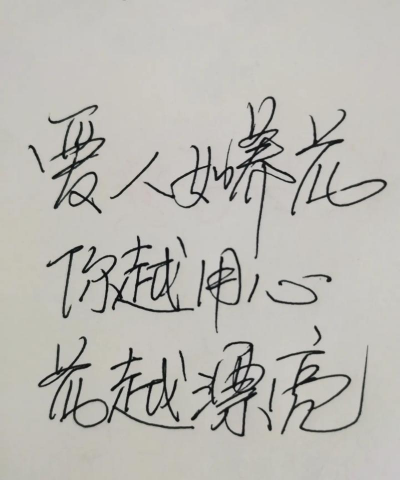 爱人如养花
你越用心
花越漂亮